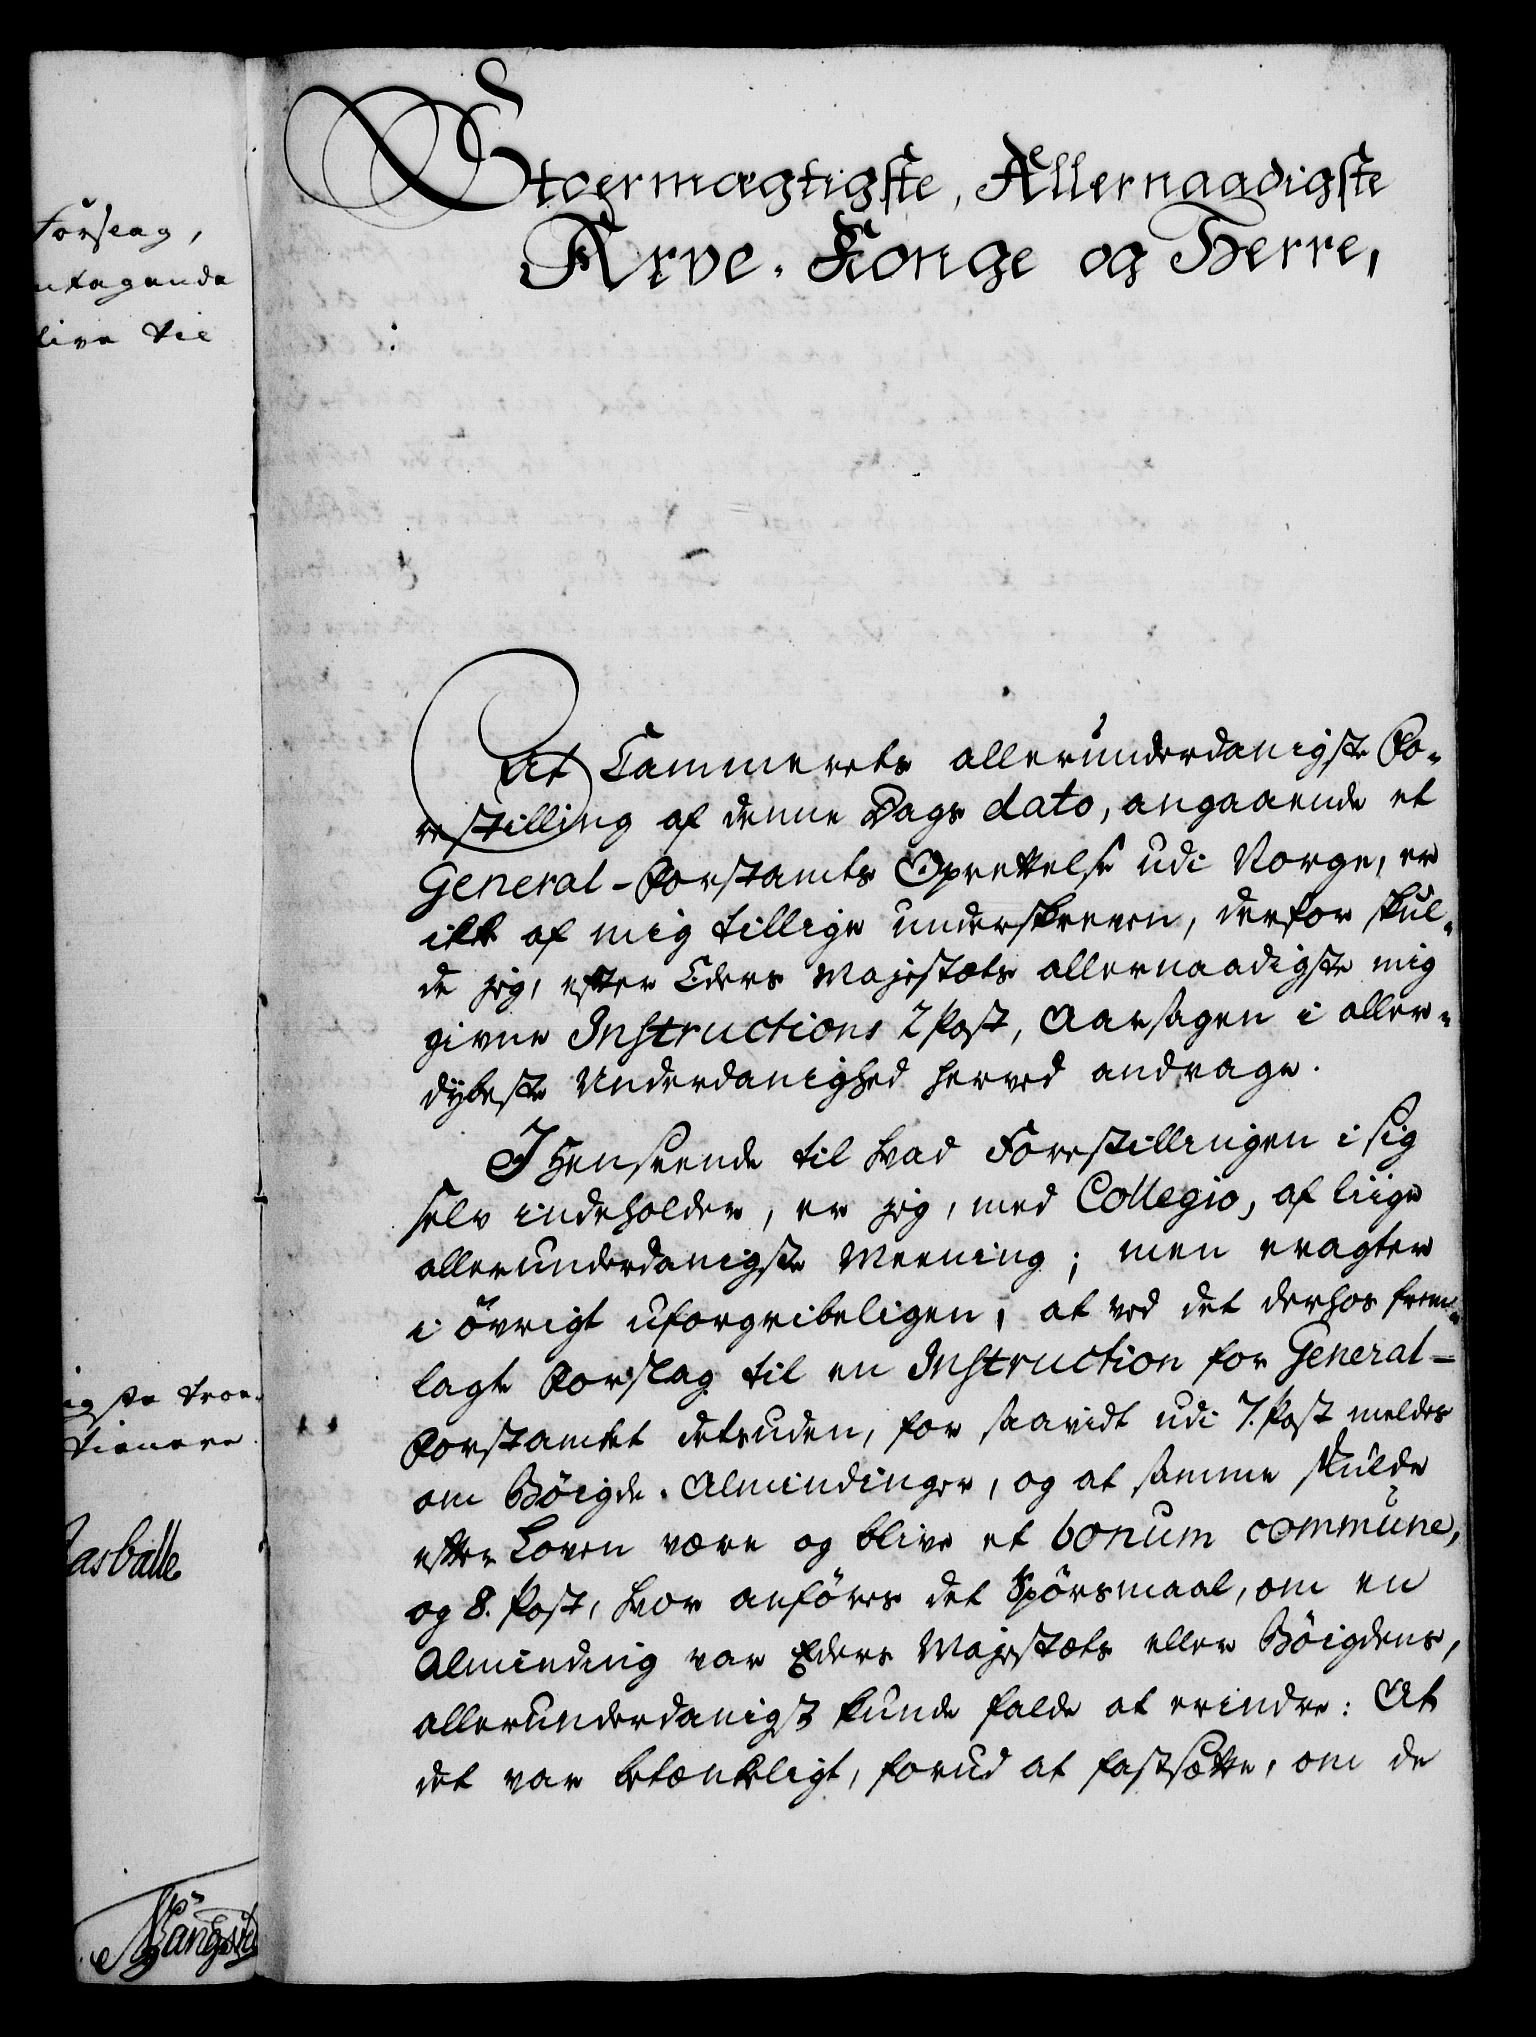 Forslag,
blive til
Stoermægtigste, Allernaadigste
Arve-Konge og Herre,
At Cammerets allerunderdanigste Fo-
restilling af denne Dags dato, angaaende et
General-Forstamts Oprettelse udi Norge, er
ikke af mig tillige underskreven, derfor skul-
de jeg, efter Eders Majestæts allernaadigste mig
givne Instructions 2 Post, Aarsagen i aller-
dybeste Underdanighed herved andrage.
I Henseende til hvad Forestillingen i sig
selv indeholder, er jeg, med Collegio, af liige
allerunderdanigste Meening; men eragter
i øvrigt uforgribeligen, at ved det derhos frem-
lagte Forslag til en Instruction for General-
Forstamtet detruden, for saavidt udi 7. Post meldes
om Bøigde-Almindinger, og at samme skulde
efter Loven være og blive et bonum commune,
og 8. Post, hvor anføres det Spørsmaal, om en
Alminding var Eders Majestæts eller Bøigdens,
allerunderdanigst kunde falde at erindre: At
det var betænkeligt, forud at fastsætte, om de
igste troe-
tienere